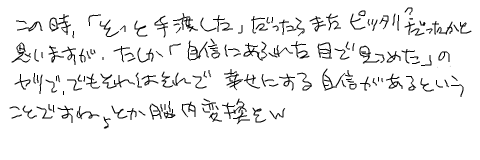 この時、「そっと手渡した」だったらまたピッタリ?だったかと
思いますが、たしか「自信にあふれた目で見つめた」の
ヤツで、でもそれはそれで幸せにする自信があるという
ことですね。とか脳内変換をw